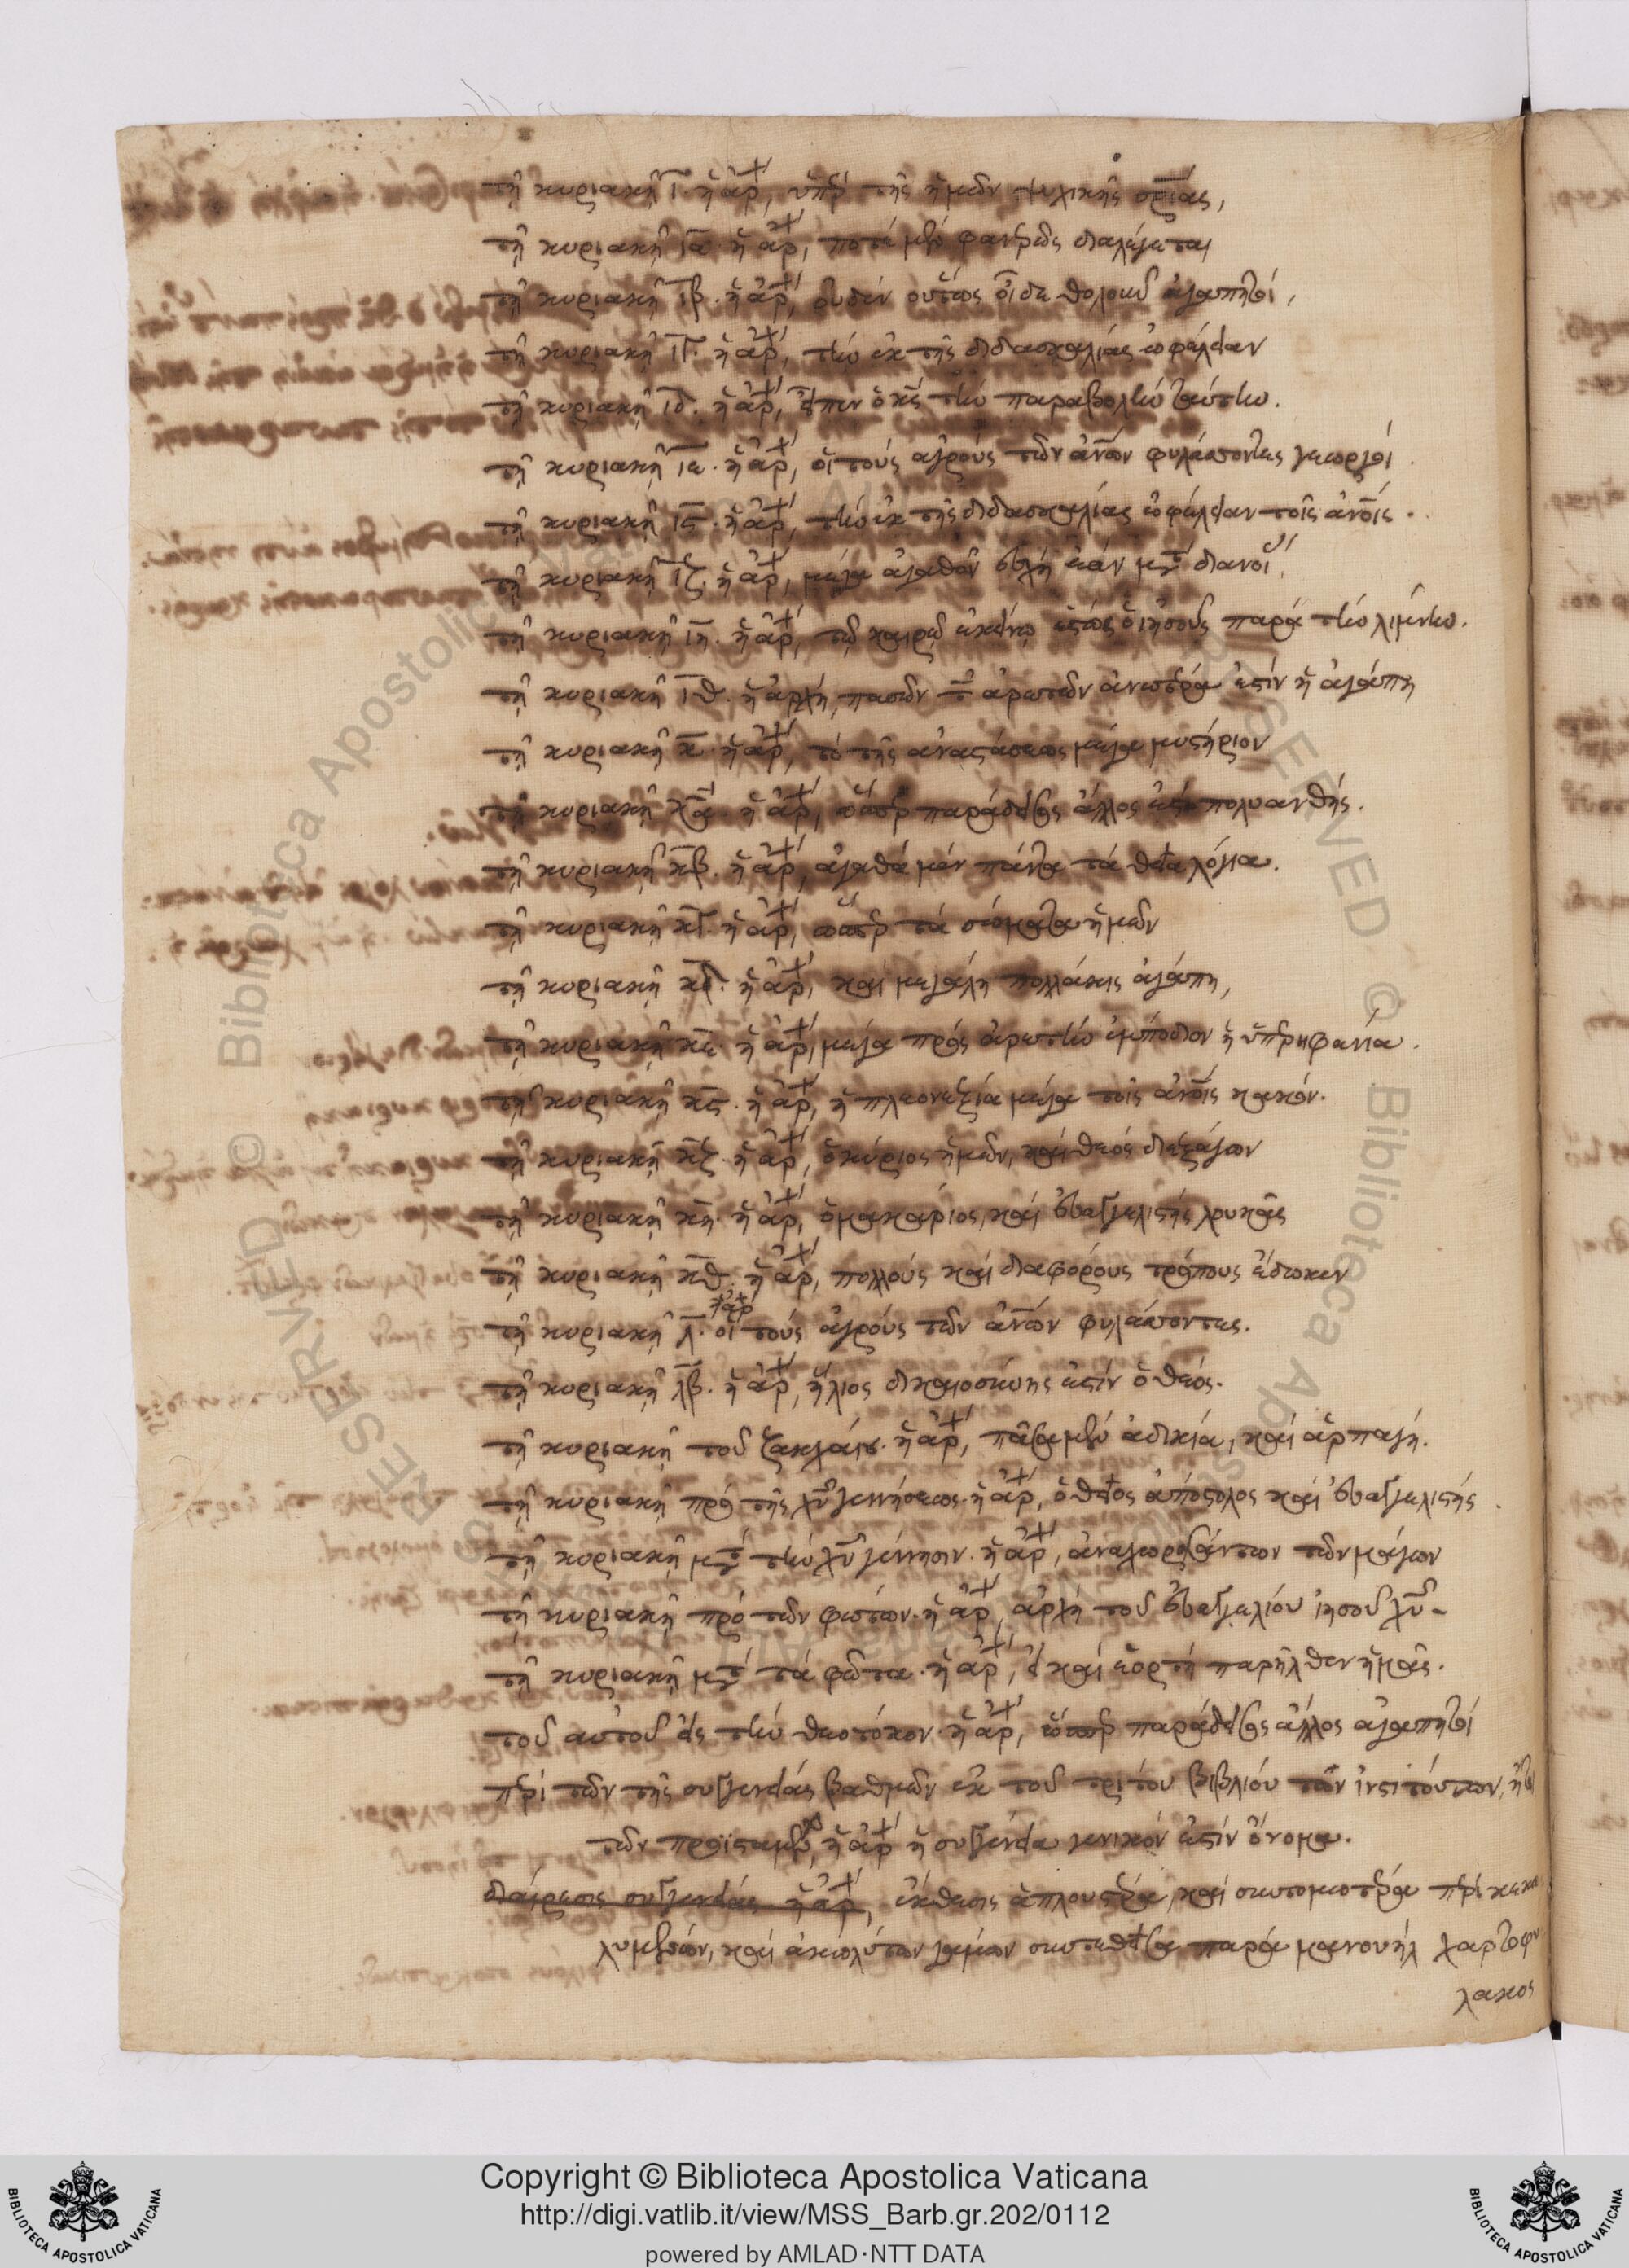 τῇ κυριακῇ ι̅. ἡ ἀρχ, ὑπὲρ τῆς ἡμῶν ψυχικῆς σρίας,
τῇ κυριακῇ ια̅. ἡ ἀρχ, ποτὲ μὲν φανερῶς διαλέγεται
τῇ κυριακῇ ιβ̅. ἡ ἀρχ, οὐδὲν οὕτως οἶδε θολοῦν ἀγαπητοί,
τῇ κυριακῇ ιγ̅. ἡ ἀρχ, τὴν ἐκ τῆς διδασκαλίας ὠφέλειαν
τῇ κυριακῇ ιδ̅. ἡ ἀρχ, εἶπεν ὁ κς τὴν παραβολὴν ταύτην.
τῇ κυριακῇ ιε̅. ἡ ἀρχ, οἱ τοὺς ἀγροὺς τῶν ἀνῶν φυλάττοντες γεωργοί.
τῇ κυριακῇ ις̅. ἡ ἀρχ, τὴν ἐκ τῆς διδασκαλίας ὠφέλειαν τοῖς ἀνοις.
τῇ κυριακῇ ιζ̅. ἡ ἀρχ, μέγα ἀγαθὸν εὐχὴ ἐὰν μετὰ διανοί
τῇ κυριακῇ ιη̅. ἡ ἀρχ, τῷ καιρῷ ἐκείνῳ ἑστὼς ὁ ἰησοῦς παρὰ τὴν λίμνην.
τῇ κυριακῇ ιθ̅. ἡ ἀρχή, πασῶν τ ἀρετῶν ἀνωτέρα ἐστὶν ἡ ἀγάπη
τῇ κυριακῇ κ̅. ἡ ἀρχ, τὸ τῆς ἀναστάσεως μέγα μυστήριον
τῇ κυριακῇ κα̅. ἡ ἀρχ, ὥσπερ παράδεισος ἄλλος ἐστὶ πολυανθής.
τῇ κυριακῇ κβ̅. ἡ ἀρχ, ἀγαθὰ μὲν πάντα τὰ θεῖα λόγια.
τῇ κυριακῇ κγ̅. ἡ ἀρχ, ὥσπερ τὰ σώματα ἡμῶν
τῇ κυριακῇ κδ̅. ἡ ἀρχ, καὶ μεγάλη πολλάκις ἀγάπη,
τῇ κυριακῇ κε̅. ἡ ἀρχ, μέγα πρὸς ἀρετὴν ἐμπόδιον ἡ ὑπερηφανία.
τῇ κυριακῇ κς̅. ἡ ἀρχ, ἡ πλεονεξία μέγα τοῖς ἀνοις κακόν.
τῇ κυριακῇ κζ̅. ἡ ἀρχ, ὁ κύριος ἡμῶν, καὶ θεὸς διεξάγων
τῇ κυριακῇ κη̅. ἡ ἀρχ, ὁ μακάριος, καὶ εὐαγγελιστὴς λουκᾶς
τῇ κυριακῇ κθ̅. ἡ ἀρχ, πολλοὺς καὶ διαφόρους τρόπους ἔδωκεν
τῇ κυριακῇ λ̅. ἡ ἀρχ οἱ τοὺς ἀγροὺς τῶν ἀνῶν φυλάττοντες.
τῇ κυριακῇ λβ̅. ἡ ἀρχ, ἥλιος δικαιοσύνης ἐστὶν ὁ θεός.
τῇ κυριακῇ τοῦ ζακχαίου. ἡ ἀρχ, πᾶσα μὲν ἀδικία, καὶ ἁρπαγή.
τῇ κυριακῇ πρὸ τῆς χῦ γεννήσεως. ἡ ἀρχ, ὁ θεῖος ἀπόστολος καὶ εὐαγγελιστής.
τῇ κυριακῇ μετὰ τὴν χῦ γέννησιν. ἡ ἀρχ, ἀναχωρησάντων τῶν μάγων
τῇ κυριακῇ πρὸ τῶν φώτων. ἡ ἀρχ, ἀρχὴ τοῦ εὐαγγελίου ἰησοῦ χῦ-
τῇ κυριακῇ μετὰ τὰ φῶτα. ἡ ἀρχ, εἰ καὶ ἑορτὴ παρῆλθεν ἡμᾶς.
τοῦ αὐτοῦ εἰς τὴν θεοτόκον. ἡ ἀρχ, ὥσπερ παράδεισος ἄλλος ἀγαπητοί
περὶ τῶν τῆς συγγενείας βαθμῶν ἐκ τοῦ τρίτου βιβλίου τῶν ἰνστιτούτων, ἤτοι
τῶν προϊσταμέν, ἡ ἀρχ ἡ συγγένεια γενικόν ἐστιν ὄνομα.
διαίρεσις συγγενείας ἡ ἀρχ, ἔκθεσις ἁπλουστέρα, καὶ συντομωτέρα περὶ κεκω
λυμένων, καὶ ἀκωλύτων γάμων συντεθεῖσα παρὰ μανουὴλ χαρτοφυ
λακος
Copyright © Biblioteca Apostolica Vaticana
http://digi.vatlib.it/view/MSS_Barb.gr.202/0112
powered by AMLAD·NTT DATA